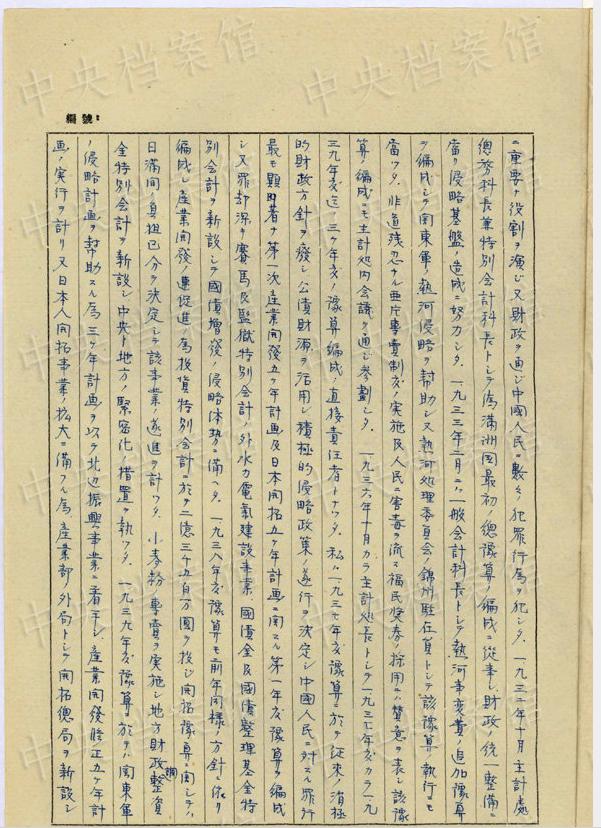 編號：
ニ重要ナ役割ヲ演ジ又財政ヲ通ジ中國人民ニ數々ノ犯罪行為ヲ犯シタ。一九三二年十月主計處
總務科長兼特別会計科長トシテ偽満洲国最初ノ總豫算ノ編成ニ從事シ財政ノ統一整備ニ
當リ侵略基盤ノ造成ニ努力シタ。一九三三年二月ニハ一般会計科長トシテ熱河事変費ノ追加豫算
ヲ編成シテ関東軍ノ熱河侵略ヲ幇助シ又熱河処理委員会ノ錦州駐在員トシテ該豫算ノ執行ニモ
當ツタ。非道残忍ナル阿片専賣制度ノ実施及人民ニ害毒ヲ流ス福民奨券ノ採用ニ賛意ヲ表シ該豫
算ノ編成ニモ主計処内会議ヲ通ジ参劃シタ。一九三六年十月カラ主計処長トシテ一九三七年度カラ一九
三九年度迄ノ三ケ年度ノ豫算編成ノ直接責任者トナツタ。私ハ一九三七年度豫算ニ於テ従来ノ消極
的財政方針ヲ廢シ公債財源ヲ活用シ積極的侵略政策ノ遂行ヲ決定シ中國人民ニ対スル罪行
最モ顕著ナ第一次産業開発五ケ年計画及日本開拓五ケ年計画ニ関スル第一年度豫算ヲ編成
シ又罪却深キ賽馬及監獄特別会計ノ外水力電氣建設事業、國債金及國債整理基金特
別会計ヲ新設シテ國債増發ノ侵略体勢ニ備ヘタ。一九三八年度豫算モ前年同様ノ方針ニ依リ
編成シ産業開發ノ速促進ノ為投資特別会計ニ於テ二億三千五百万圓ヲ投ジ開拓豫算ニ関シテハ
日満間ノ負担区分ヲ決定シテ該事業ノ遂進ヲ計ツタ。小麦粉ノ専賣ヲ実施シ地方財政調整資
金特別会計ヲ新設シ中央ト地方ノ緊密化ノ措置ヲ執ツタ。一九三九年度豫算ニ於テハ関東軍
ノ侵略計画ヲ幇助スル為三ケ年計画ヲ以テ北辺振興事業ニ着手シ、産業開發修正五ケ年計
画ノ実行ヲ計リ又日本人開拓事業ノ拡大ニ備フル為、産業部ノ外局トシテ開拓總局ヲ新設シ
中央档案馆